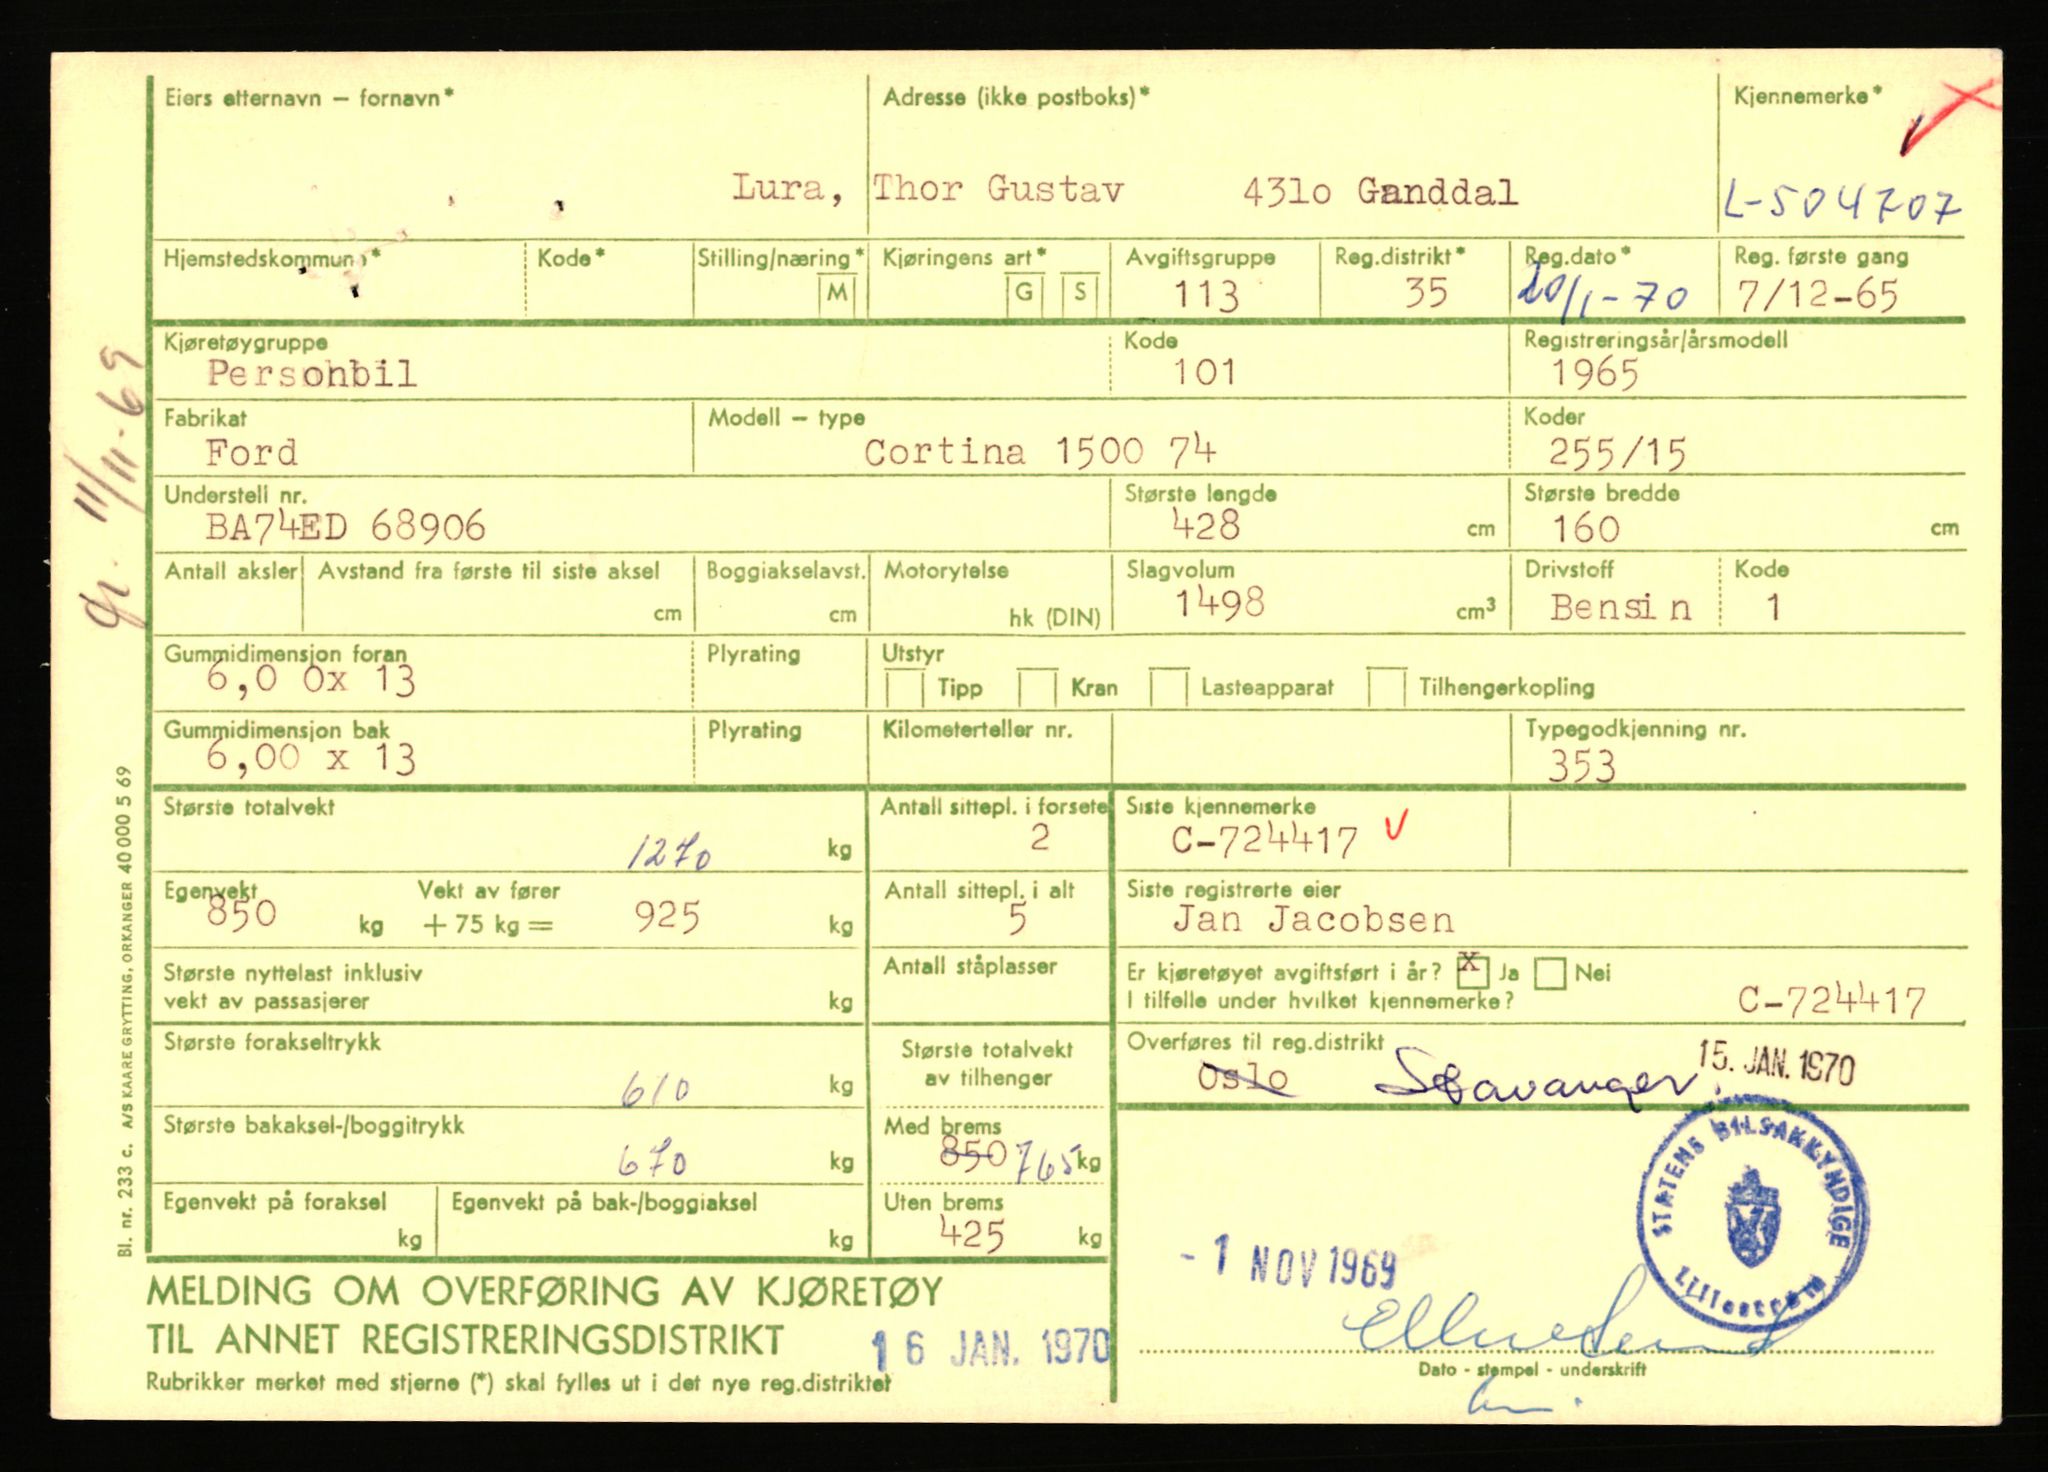 Eiers etternavn – fornavn*
Adresse (ikke postboks)*
Kjennemerke*
Lura, Thor Gustav 431o Ganddal
L-504707
Hjemstedskommune*
Kode*
Stilling/næring*
M
Kjøringens art*
G S
Avgiftsgruppe
113
Reg.distrikt*
35
Reg.dato*
20/1-70
Reg. første gang
7/12-65
Kjøretøygruppe
Personbil
Kode
101
Registreringsår/årsmodell
1965
Fabrikat
Ford
Modell – type
Cortina 1500 74
Koder
255/15
Understell nr.
BA74ED 68906
Største lengde
428 cm
Største bredde
160 cm
Antall aksler
Avstand fra første til siste aksel
cm
Boggiakselavst.
cm
Motorytelse
hk (DIN)
Slagvolum
1498 cm³
Drivstoff
Bensin
Kode
1
Gummidimensjon foran
6,0 0x 13
Plyrating
Utstyr
Tipp Kran Lasteapparat Tilhengerkopling
Gummidimensjon bak
6,00 x 13
Plyrating
Kilometerteller nr.
Typegodkjenning nr.
353
Største totalvekt
1270 kg
Antall sittepl. i forsete
2
Siste kjennemerke
C-724417 V
Egenvekt
850 kg
Vekt av fører
+ 75 kg = 925 kg
Antall sittepl. i alt
5
Siste registrerte eier
Jan Jacobsen
Største nyttelast inklusiv
vekt av passasjerer kg
Antall ståplasser
Er kjøretøyet avgiftsført i år? x Ja Nei
I tilfelle under hvilket kjennemerke? C-724417
Største forakseltrykk
610 kg
Største totalvekt
av tilhenger
Overføres til reg.distrikt
Oslo Stavanger 15. JAN. 1970
Største bakaksel-/boggitrykk
670 kg
Med brems
850 765 kg
Egenvekt på foraksel
kg
Egenvekt på bak-/boggiaksel
kg
Uten brems
425 kg
STATENS BILSAKKYNDIGE
Lillestrøm
- 1 NOV 1969
MELDING OM OVERFØRING AV KJØRETØY
TIL ANNET REGISTRERINGSDISTRIKT
16 JAN. 1970
Rubrikker merket med stjerne (*) skal fylles ut i det nye reg.distriktet
Dato - stempel - underskrift
11/11-69
Bl. nr. 233 c. A/S KAARE GRYTTING, ORKANGER 40 000 5 69